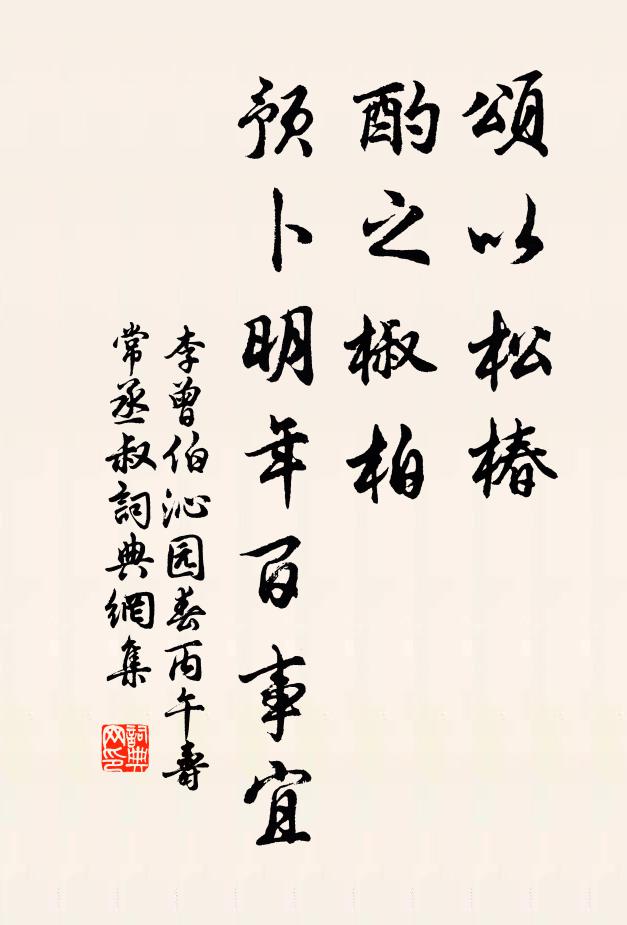 頌以松椿
酌之椒柏
預卜明年百事宜
李曾伯沁园春丙午壽
常丞叔詞典網集
詞典网印